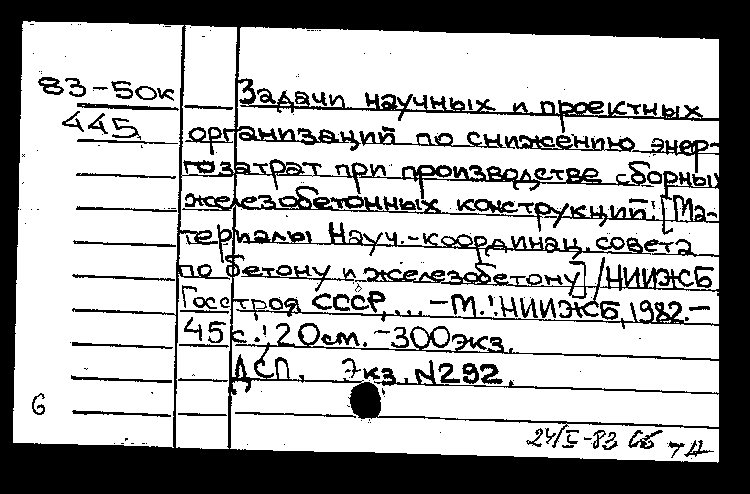 83-50к Задачи научных и проектных
445 организаций по снижению энер-
гозатрат при производстве сборных
железобетонных конструкций: [Ма-
териалы Науч.-координац. совета
по бетону и железобетону] / НИИЖБ
Госстроя СССР, ... - М.: НИИЖБ, 1982.-
45 с.; 20 см. - 300 экз.
ДСП. Экз. N292.
6
24/I-83 Сб